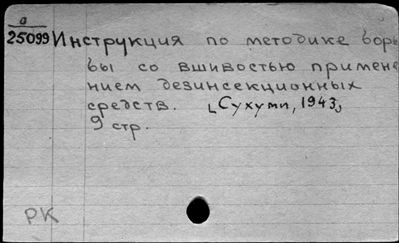 a
25099 Инструкция по методике борь
бы со вшивостью примене
нием дезинсекционных
средств. [Сухуми, 1943]
9 стр.
РК